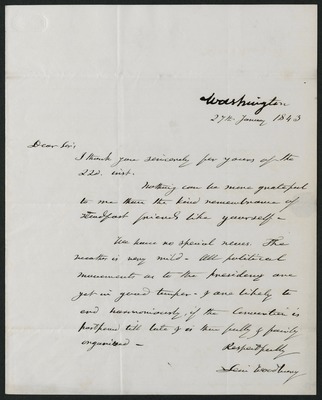 Washington
27th January 1843
Dear Sir,
I thank you sincerely for yours of the
22d. inst.
Nothing can be more grateful
to me than the kind remembrance of
steadfast friends like yourself -
We have no special news. The
weather is very mild - All political
movements as to the presidency are
yet in good temper - & are likely to
end harmoniously if the Convention is
postponed till late & is then fully & fairly
organised -
Respectfully
Levi Woodbury